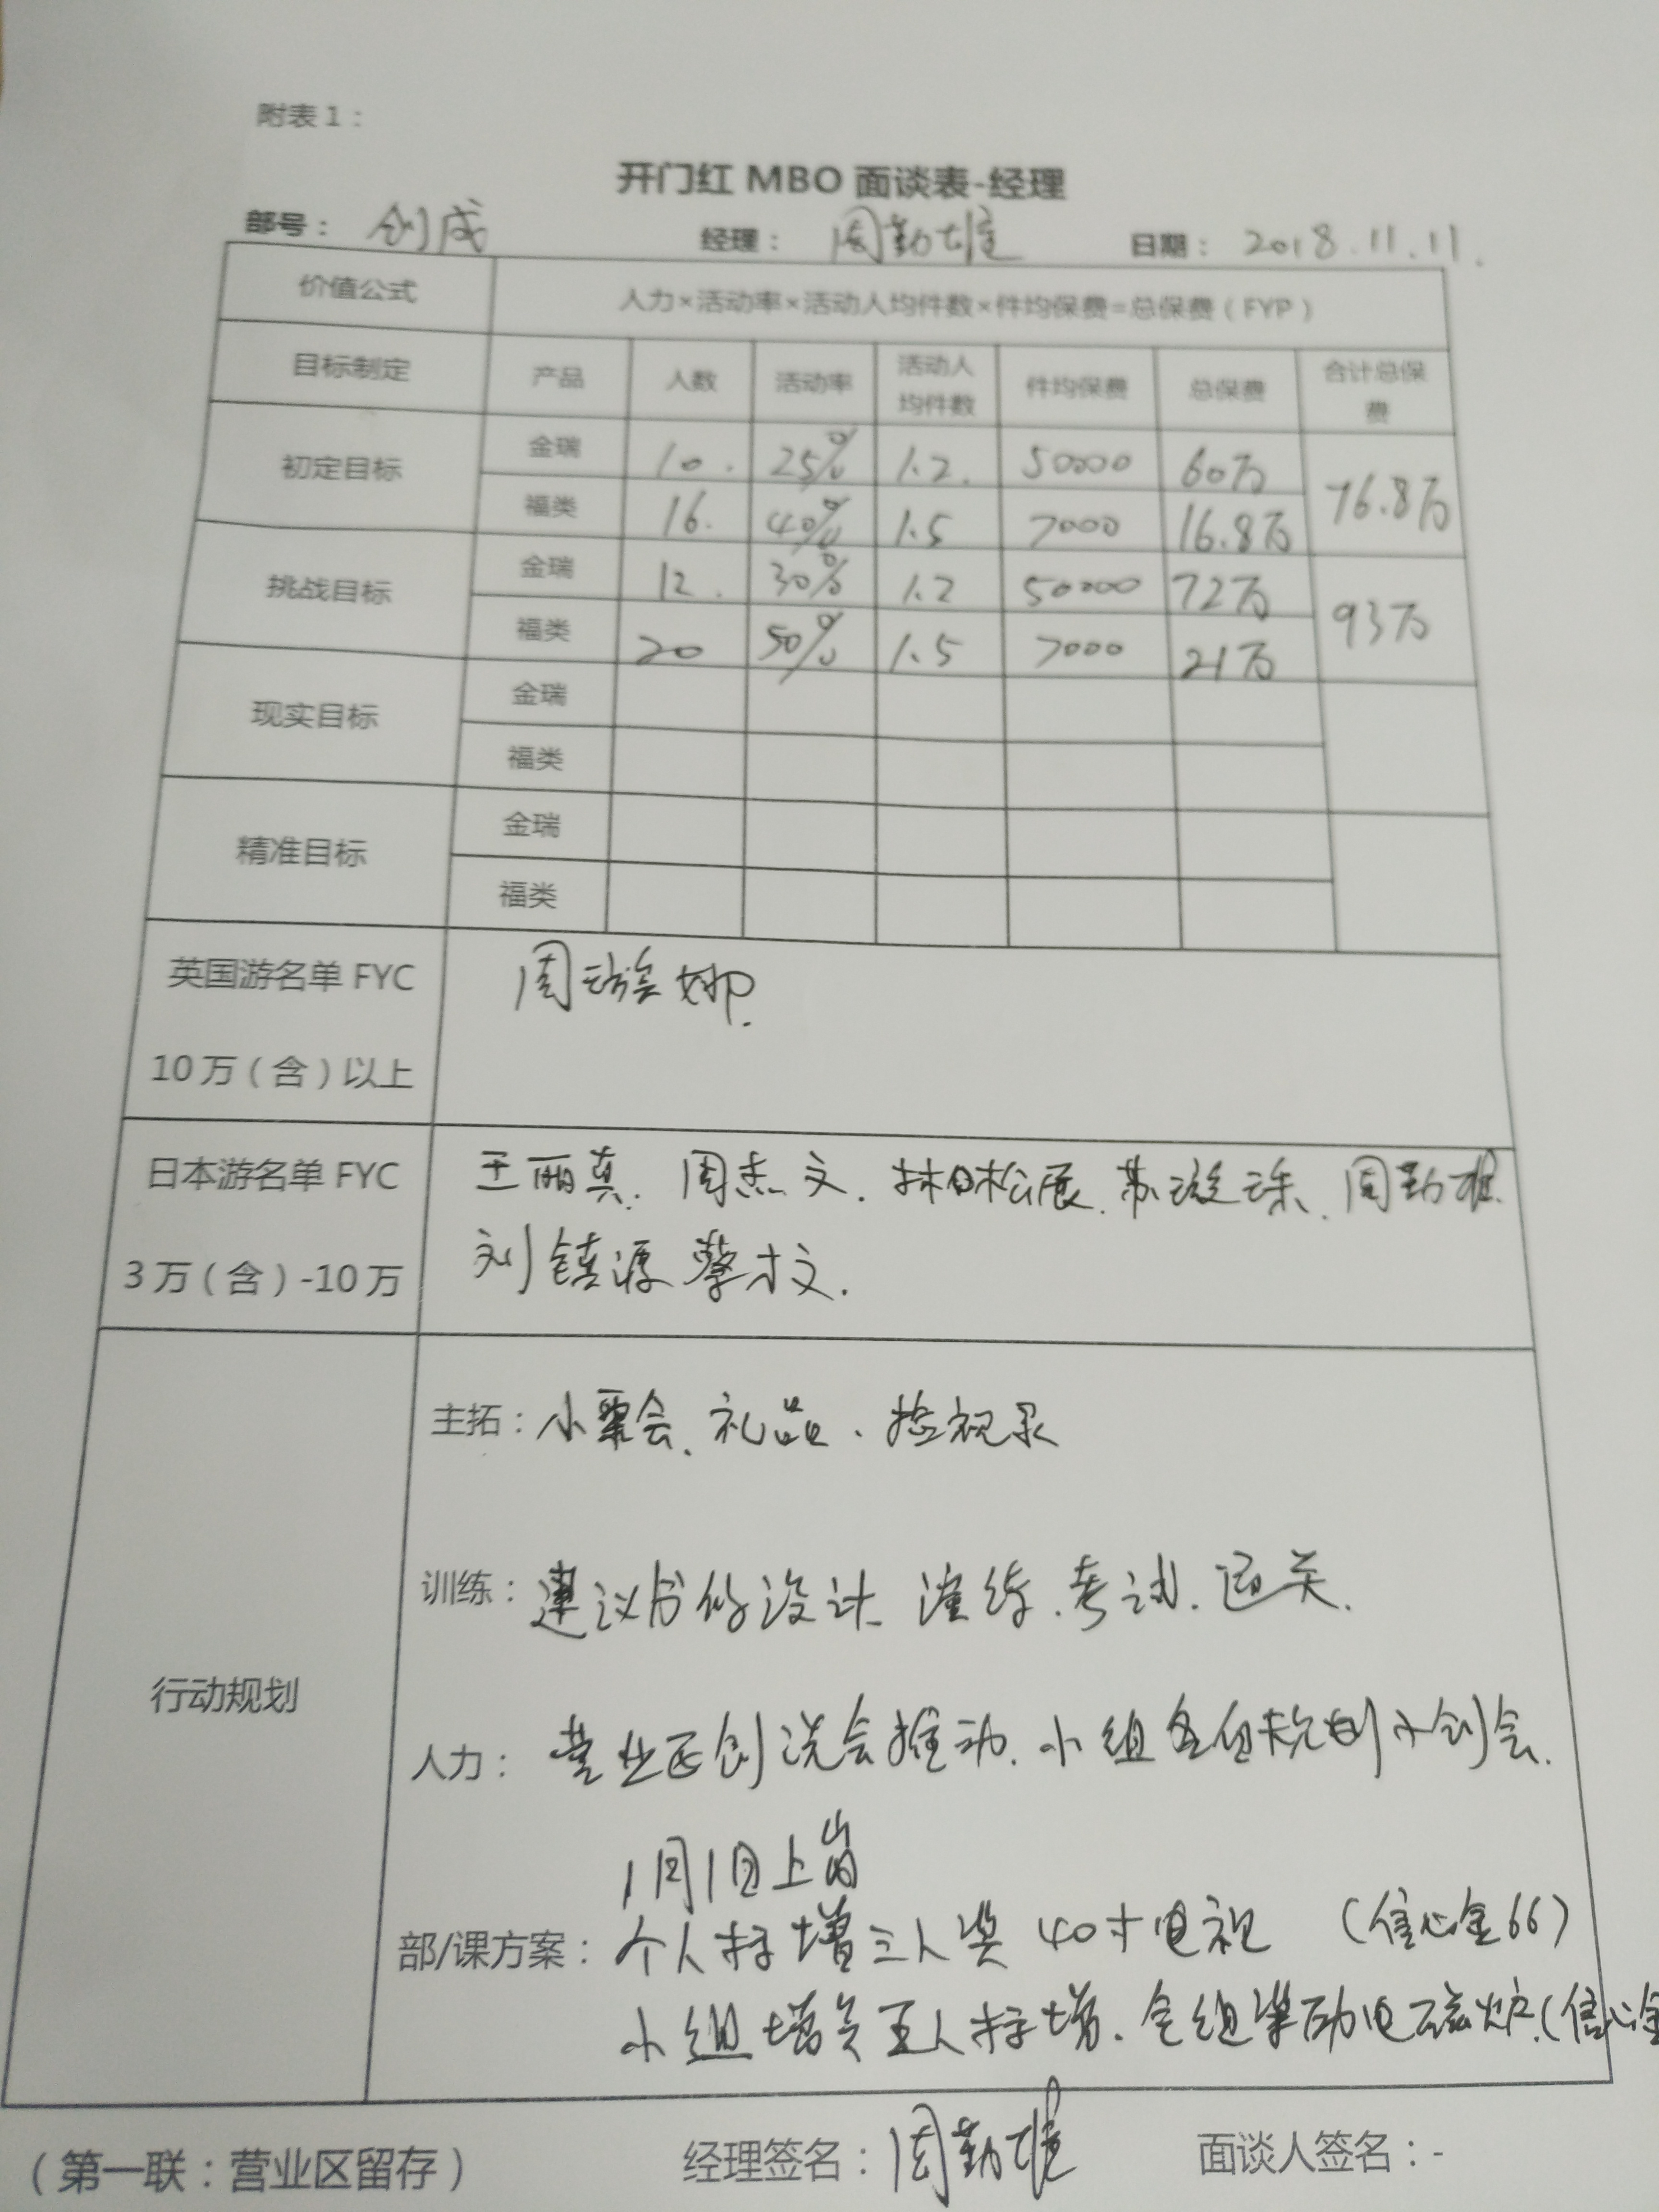 附表1：
开门红 MBO 面谈表-经理
部号： 创成 经理： 周勤雄 日期： 2018.11.11.
价值公式 人力×活动率×活动人均件数×件均保费=总保费（FYP）
目标制定 产品 人数 活动率 活动人均件数 件均保费 总保费 合计总保费
初定目标 金瑞 10. 25% 1.2. 50000 60万 76.8万
福类 16. 40% 1.5 7000 16.8万
挑战目标 金瑞 12. 30% 1.2 50000 72万 93万
福类 20 50% 1.5 7000 21万
现实目标 金瑞
福类
精准目标 金瑞
福类
英国游名单 FYC
10万（含）以上
周 娜.
日本游名单 FYC
3万（含）-10万
王丽真. 周杰文. 林松展. 苏璇珠. 周勤雄.
刘镇源 蔡才文.
行动规划
主拓：小聚会、礼品、检视录
训练：建议书的设计 演练.考试.通关.
人力：营业区创说会推动.小组各自规划小创会.
1月1日上岗
部/课方案：个人标增三人奖 40寸电视 （信心金66）
小组增员五人标增.全组奖励电磁炉.（信心金
（第一联：营业区留存） 经理签名：周勤雄 面谈人签名：-